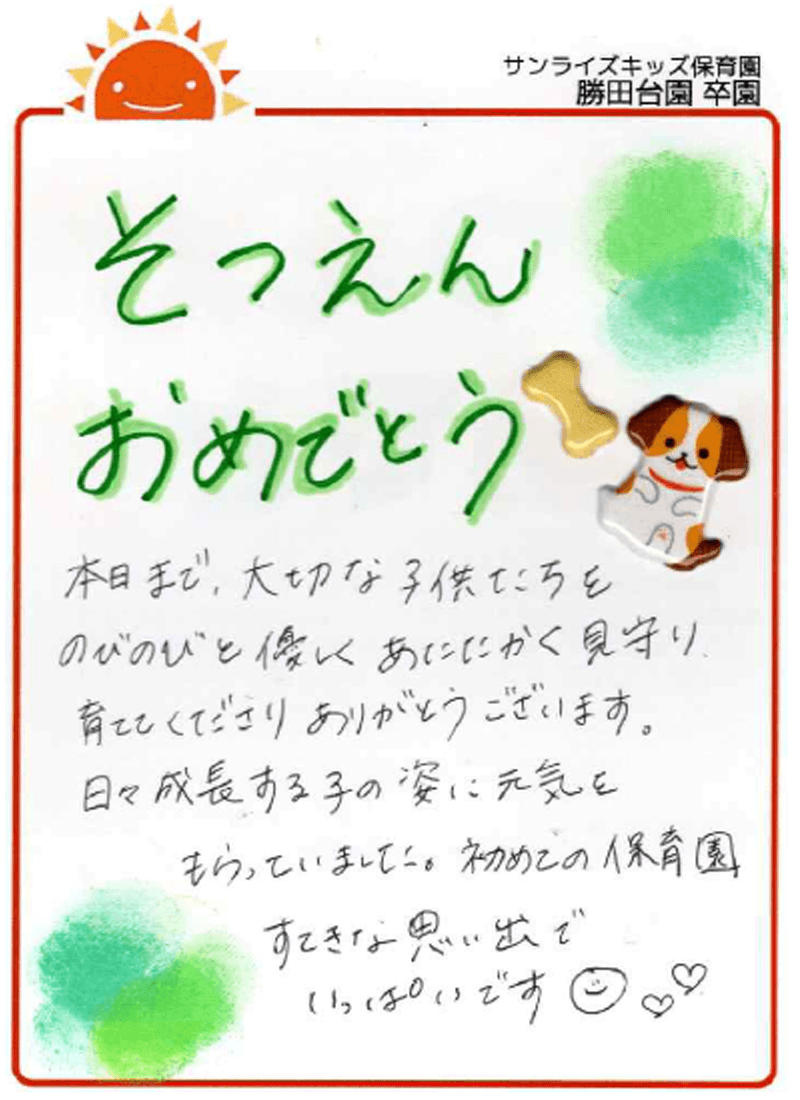 サンライズキッズ保育園
勝田台園 卒園
そつえん
おめでとう
本日まで、大切な子供たちを
のびのびと優しくあたたかく見守り、
育ててくださりありがとうございます。
日々成長する子の姿に元気を
もらっていました。初めての保育園
すてきな思い出で
いっぱいです